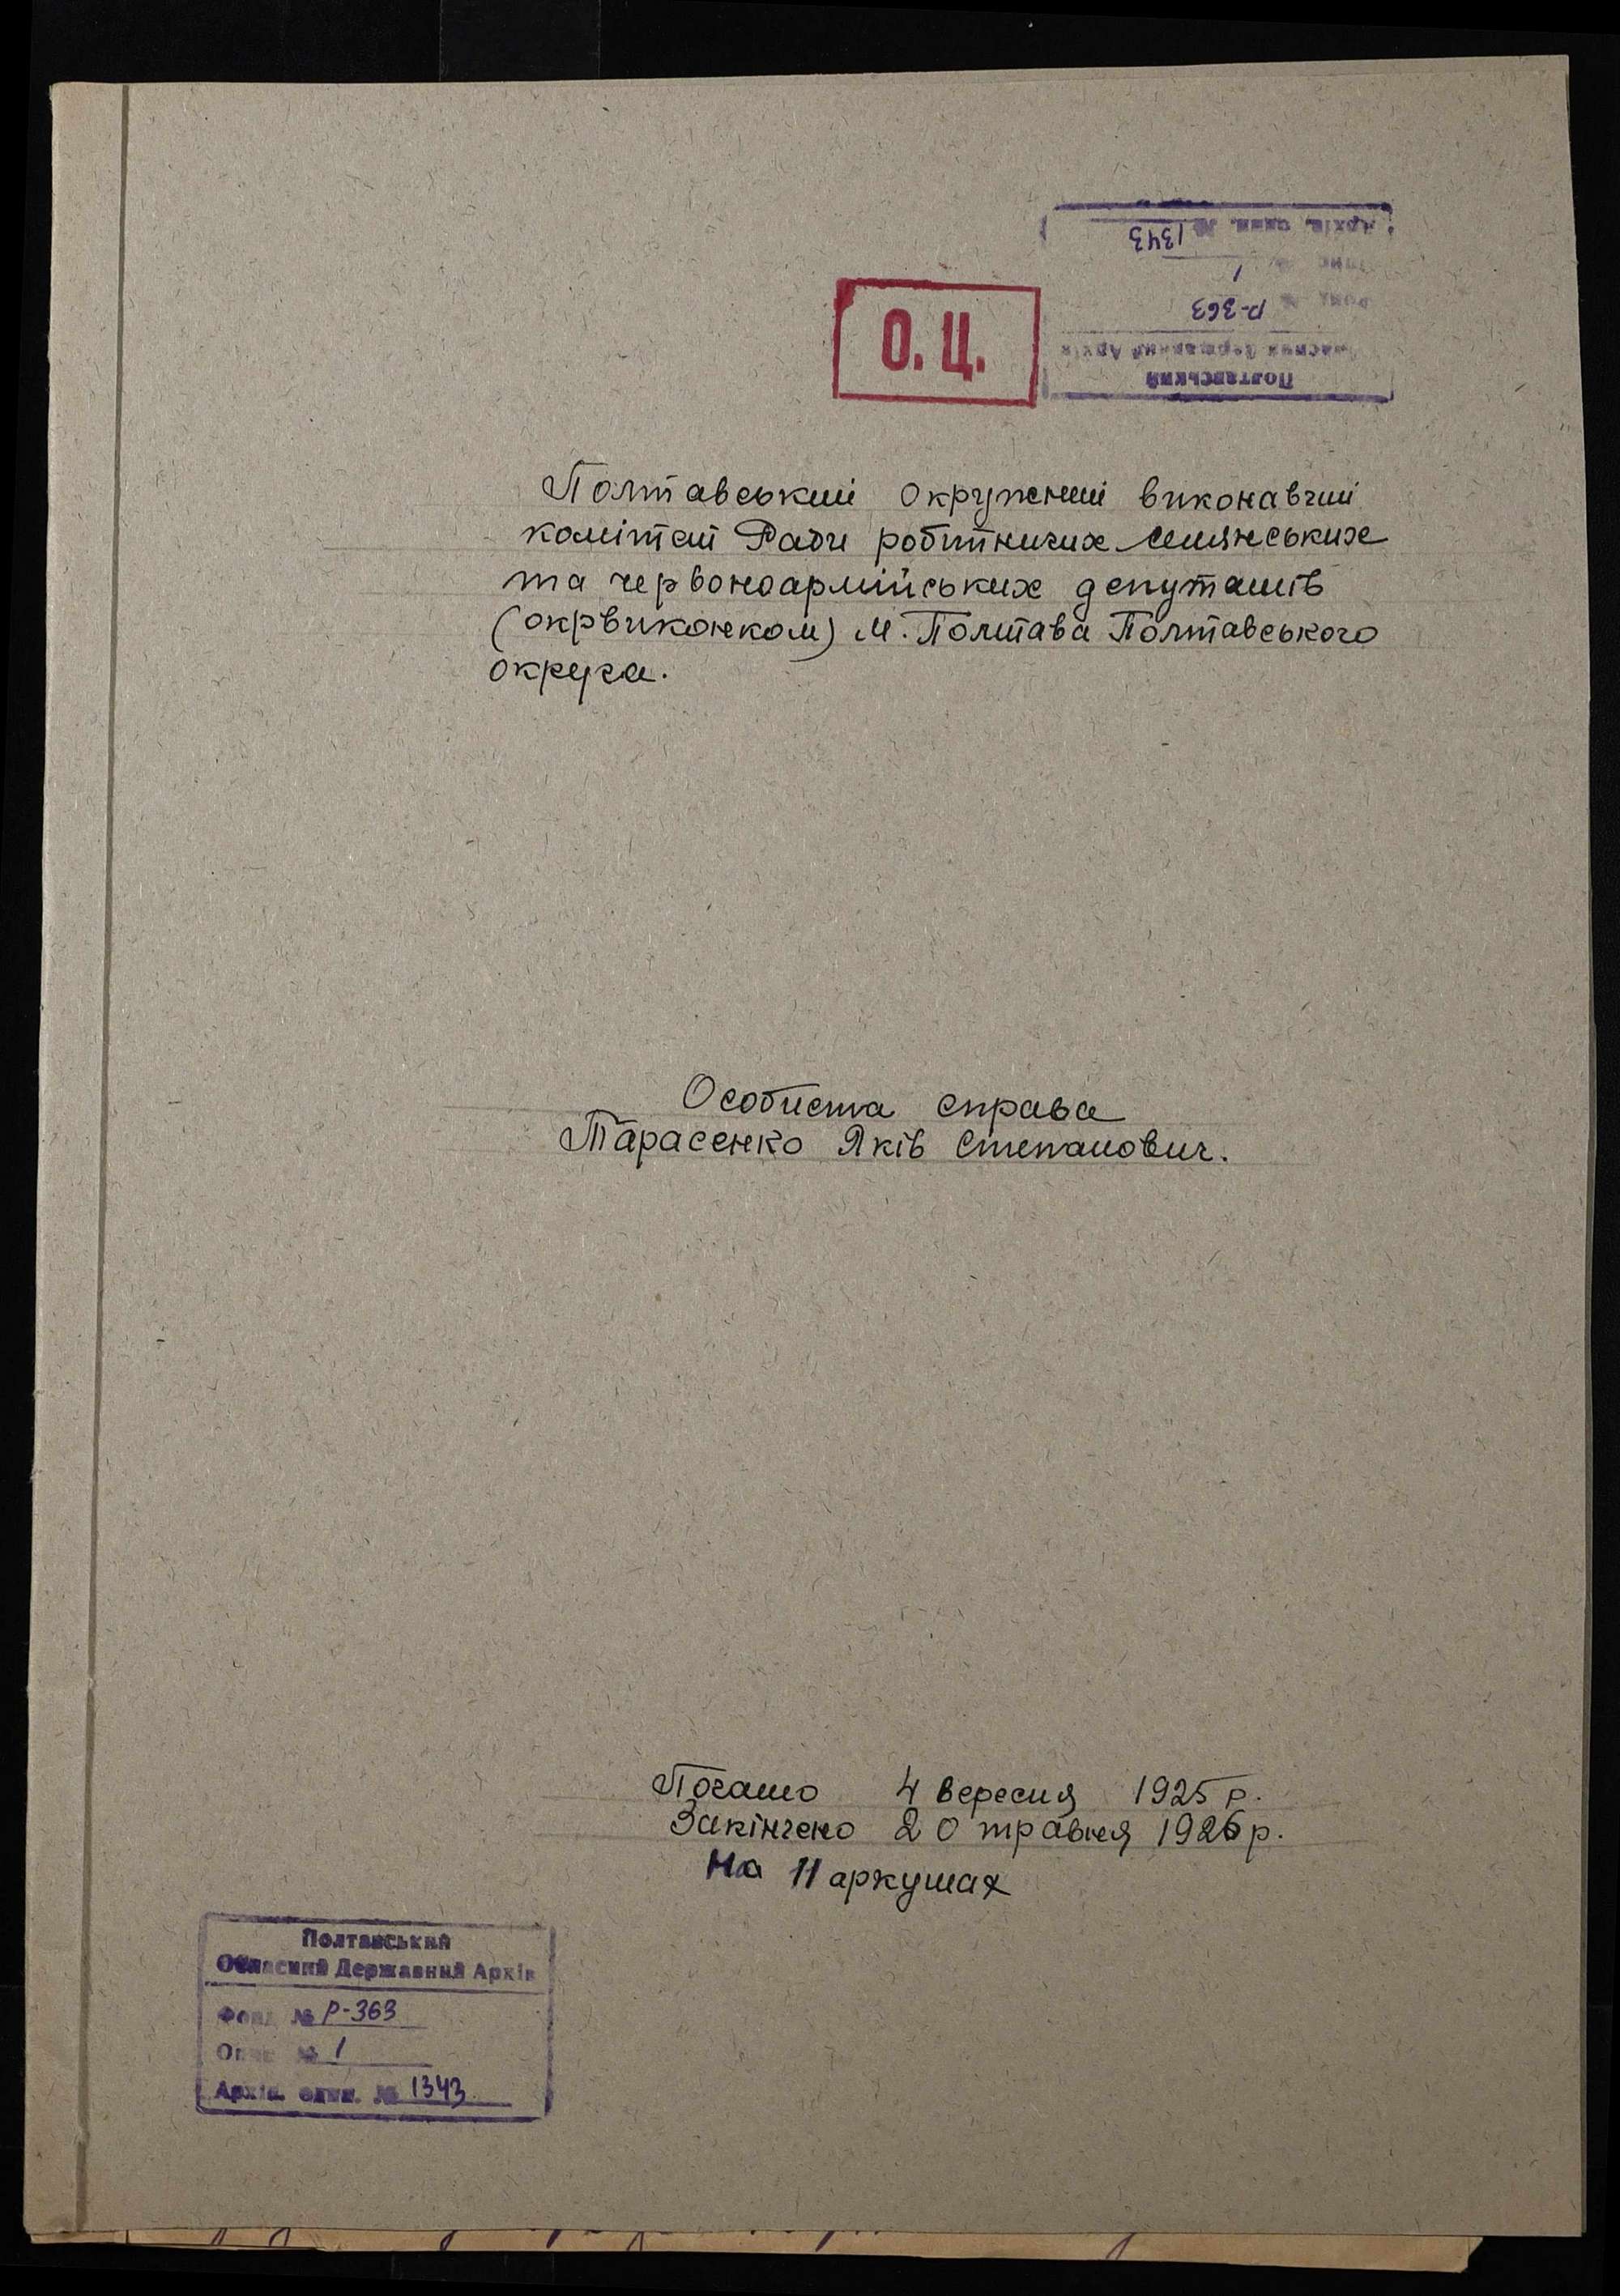 Архів. один. № 1343
Опис № 1
Фонд № Р-363
Обласний Державний Архів
Полтавський
О. Ц.
Полтавський Окружний виконавчий
комітет Ради робітничих селянських
та червоноармійських депутатів
(окрвиконком) м. Полтава Полтавського
округа.
Особиста справа
Тарасенко Яків Степанович.
Почато 4 вересня 1925 р.
Закінчено 20 травня 1926 р.
На 11 аркушах
Полтавський
Обласний Державний Архів
Фонд № Р-363
Опис № 1
Архів. один. № 1343